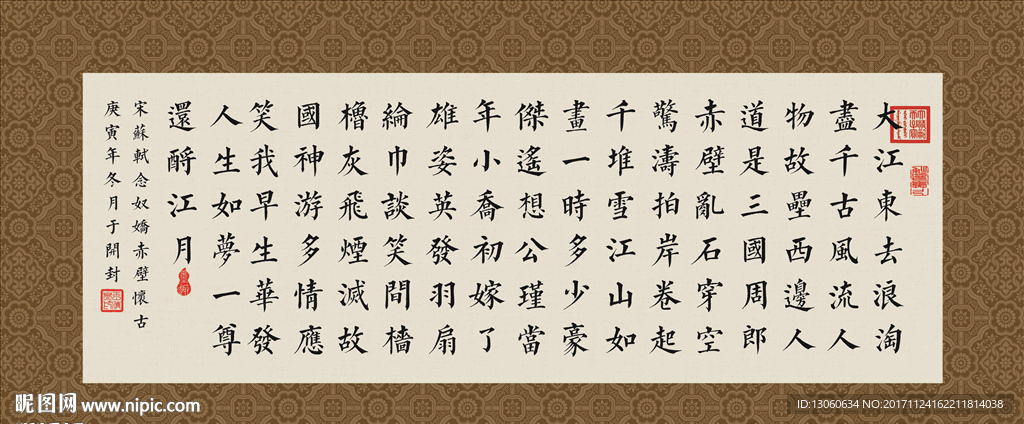 大江東去浪淘
盡千古風流人
物故壘西邊人
道是三國周郎
赤壁亂石穿空
驚濤拍岸卷起
千堆雪江山如
畫一時多少豪
傑遙想公瑾當
年小喬初嫁了
雄姿英發羽扇
綸巾談笑間檣
櫓灰飛煙滅故
國神游多情應
笑我早生華發
人生如夢一尊
還酹江月
宋蘇軾念奴嬌赤壁懷古
庚寅年冬月于開封
昵图网 www.nipic.com
ID:13060634 NO:20171124162211814038